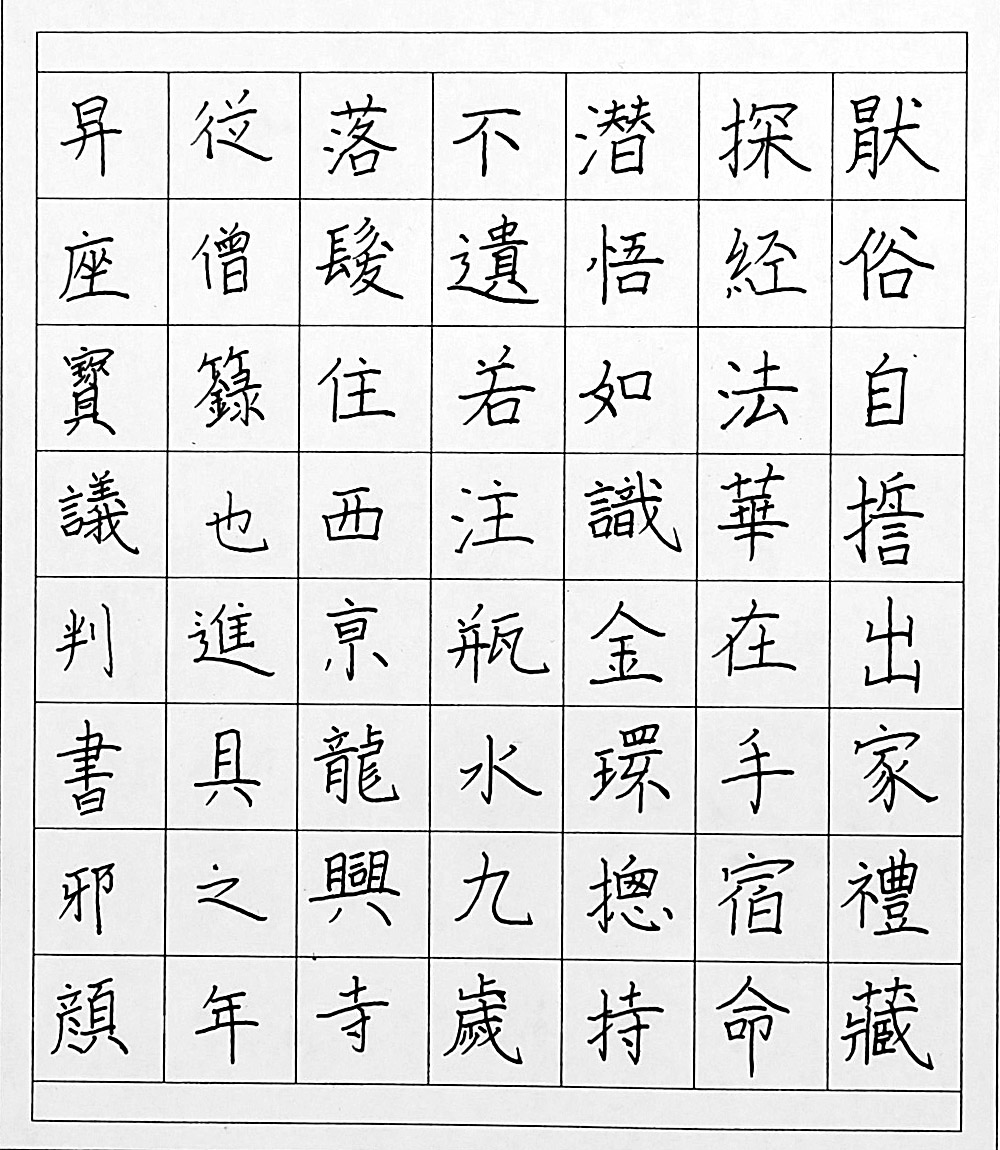 猒俗自誓出家禮藏
探経法華在手宿命
潜悟如識金環摠持
不遺若注瓶水九歲
落髮住西亰龍興寺
従僧籙也進具之年
昇座寳議判書邪顔